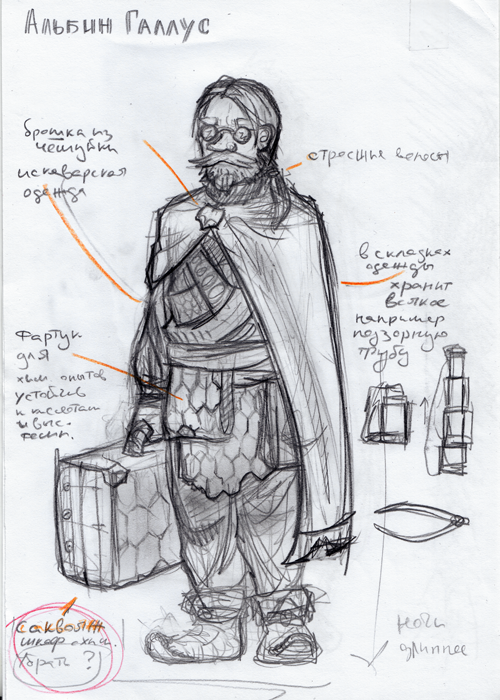 Альбин Галлус
брошка из
чешуйки
одежда
отросшие волосы
в складках
одежды
хранит
всякое
например
подзорную
трубу
Фартук
для
хим. опытов
устойчив
к кислотам
и выс.
темп.
саквояж
шкаф с хим.
убрать?
ноги
длиннее